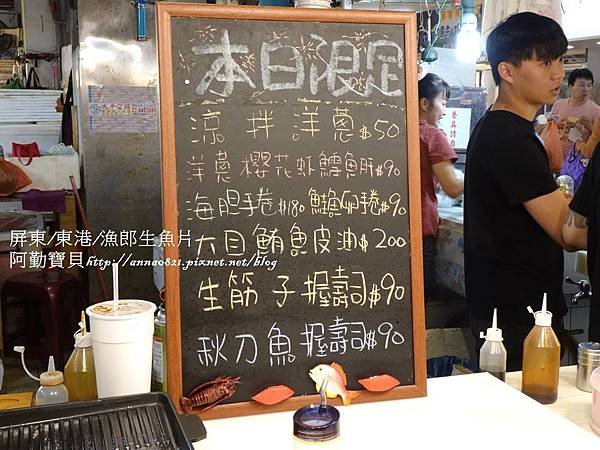 本日限定
涼拌洋蔥$50
洋蔥櫻花蝦鱈魚肝$90
海胆手卷$180 鮭魚卵手卷$90
大目鮪魚皮油$200
生筋子握壽司$90
秋刀魚握壽司$90
屏東/東港/漁郎生魚片
阿勤寶貝http://anna0821.pixnet.net/blog